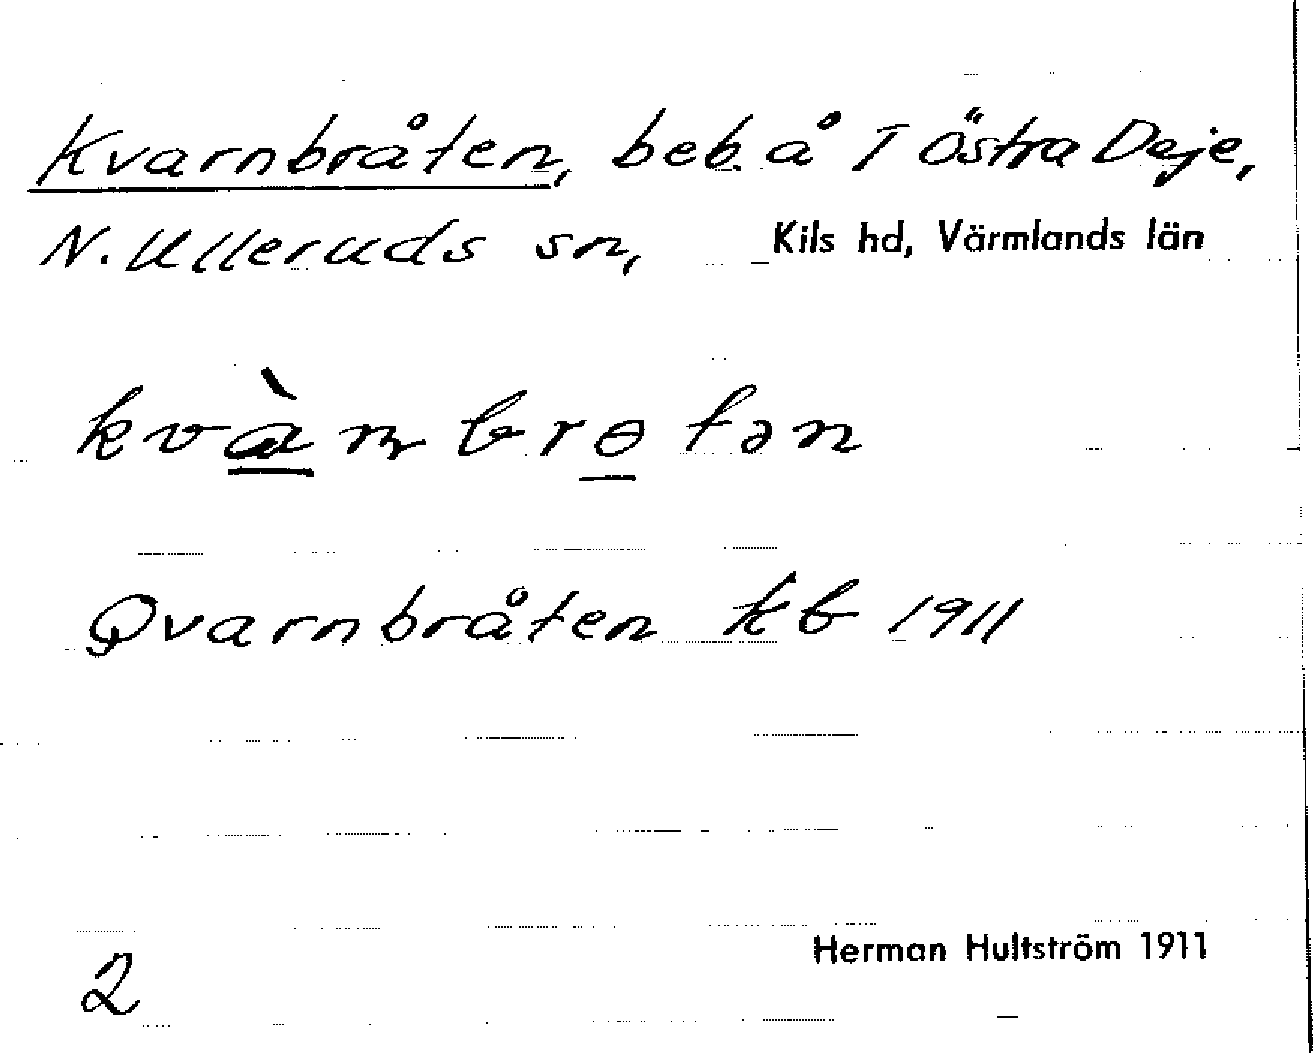 Kvarnbråten, beb. å 1 Östra Deje,
N. Ulleruds sn, Kils hd, Värmlands län
kvànbrɵtən
Qvarnbråten kb 1911
Herman Hultström 1911
2